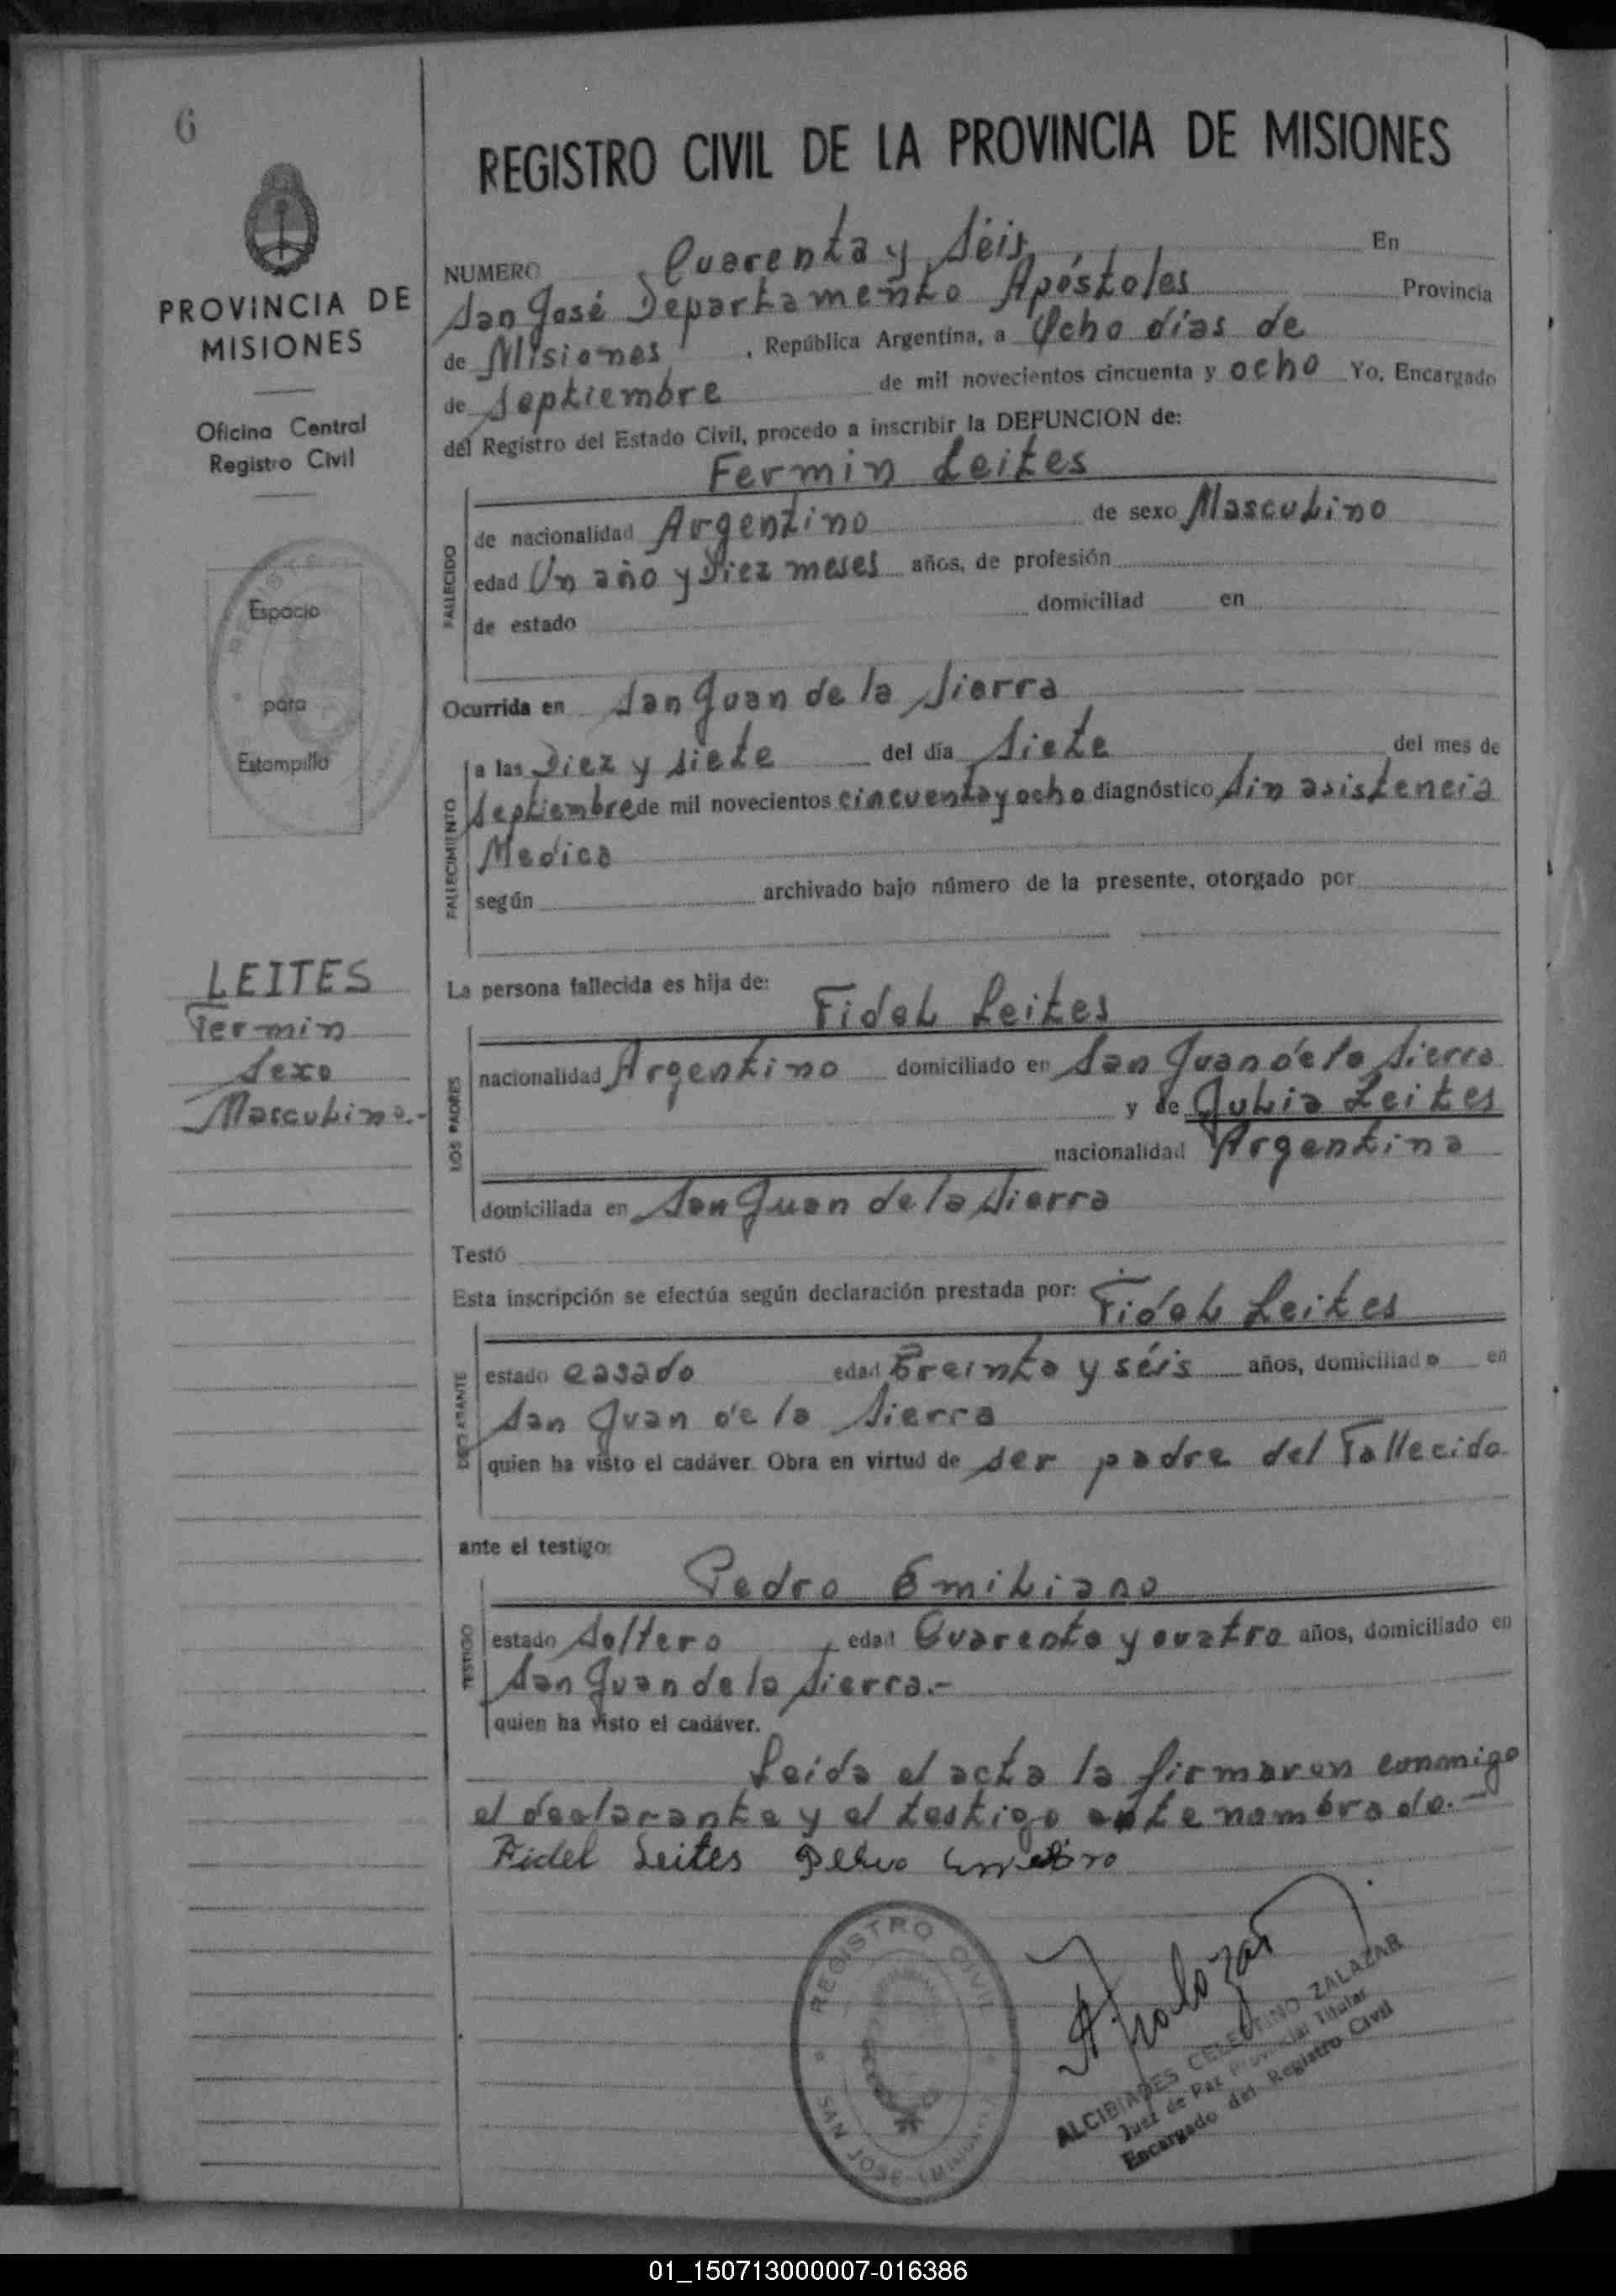 6
PROVINCIA DE
MISIONES
Oficina Central
Registro Civil
Espacio
para
Estampilla
LEITES
Fermin
Sexo
Masculino.-
REGISTRO CIVIL DE LA PROVINCIA DE MISIONES
NUMERO Cuarenta y Séis En
San José Departamento Apóstoles Provincia
de Misiones, República Argentina, a Ocho días de
de Septiembre de mil novecientos cincuenta y ocho Yo, Encargado
del Registro del Estado Civil, procedo a inscribir la DEFUNCION de:
Fermin Leites
FALLECIDO
de nacionalidad Argentino de sexo Masculino
edad Un año y Diez meses años, de profesión
de estado domiciliad en
Ocurrida en San Juan de la Sierra
FALLECIMIENTO
a las Diez y siete del día Siete del mes de
Septiembre de mil novecientos cincuenta y ocho diagnóstico Sin asistencia
Medica
según archivado bajo número de la presente, otorgado por
La persona fallecida es hija de:
Fidel Leites
LOS PADRES
nacionalidad Argentino domiciliado en San Juan de la Sierra
y de Julia Leites
nacionalidad Argentina
domiciliada en San Juan de la Sierra
Testó
Esta inscripción se efectúa según declaración prestada por: Fidel Leites
DECLARANTE
estado casado edad Treinta y séis años, domiciliado en
San Juan de la Sierra
quien ha visto el cadáver. Obra en virtud de ser padre del Fallecido
ante el testigo:
Pedro Emiliano
TESTIGO
estado Soltero, edad Cuarenta y cuatro años, domiciliado en
San Juan de la Sierra.-
quien ha visto el cadáver.
Leida el acta la firmaron conmigo
el declarante y el testigo ante nombrado.-
Fidel Leites
REGISTRO CIVIL
SAN JOSE (Misiones)
ALCIBIADES CELESTINO ZALAZAR
Juez de Paz Provincial Titular
Encargado del Registro Civil
01_150713000007-016386